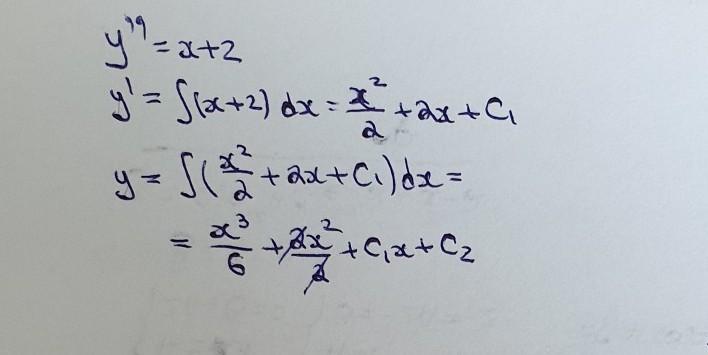 y'' = x+2
y' = ∫(x+2) dx = x²/2 + 2x + C₁
y = ∫(x²/2 + 2x + C₁)dx =
= x³/6 + 2x²/2 + C₁x + C₂